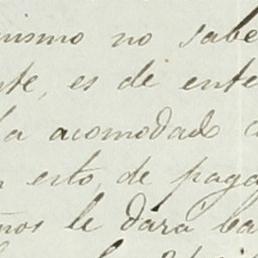 mismo no sabe
nte, es de ente
ha acomodado
n esto, de paga
ños le dará ba